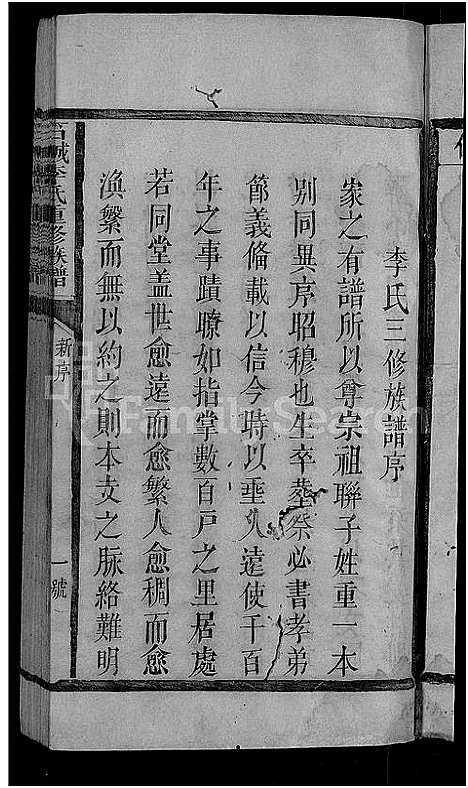 李氏三修族譜序
家之有譜所以尊宗祖聯子姓重一本
別同異序昭穆也生卒塟祭必書孝弟
節義俻載以信今時以垂久遠使千百
年之事蹟瞭如指掌數百戶之里居處
若同堂盖世愈遠而愈繁人愈稠而愈
渙繁而無以約之則本支之脉絡難明
石城李氏重修族譜
新序
一號
FamilySearch